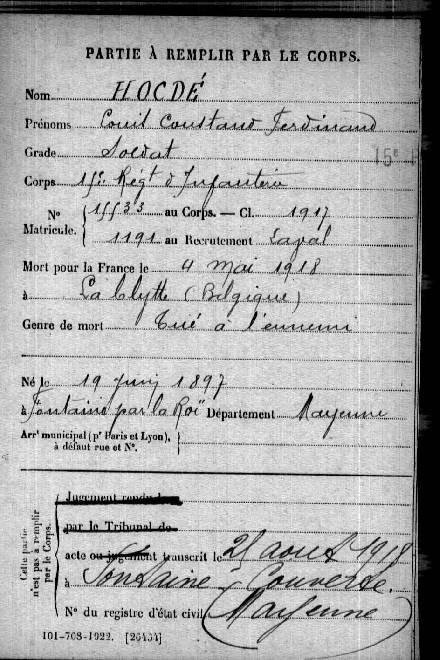 PARTIE À REMPLIR PAR LE CORPS.
Nom HOCDÉ
Prénoms Louis Constand Ferdinand
Grade Soldat
15e
Corps 15e Régt d'Infanterie
N° Matricule. { 15533 au Corps. — Cl. 1917
1191 au Recrutement Laval
Mort pour la France le 4 mai 1918
à La Clytte (Belgique)
Genre de mort Tué à l'ennemi
Né le 19 juin 1897
à Fontaine par la Roï Département Mayenne
Arrt municipal (pr Paris et Lyon), à défaut rue et N°.
Cette partie n'est pas à remplir par le Corps.
Jugement rendu le
par le Tribunal de
acte ou jugement transcrit le 25 aout 1918
à Fontaine-Couverte.
N° du registre d'état civil (Mayenne)
101-708-1922. [26434]